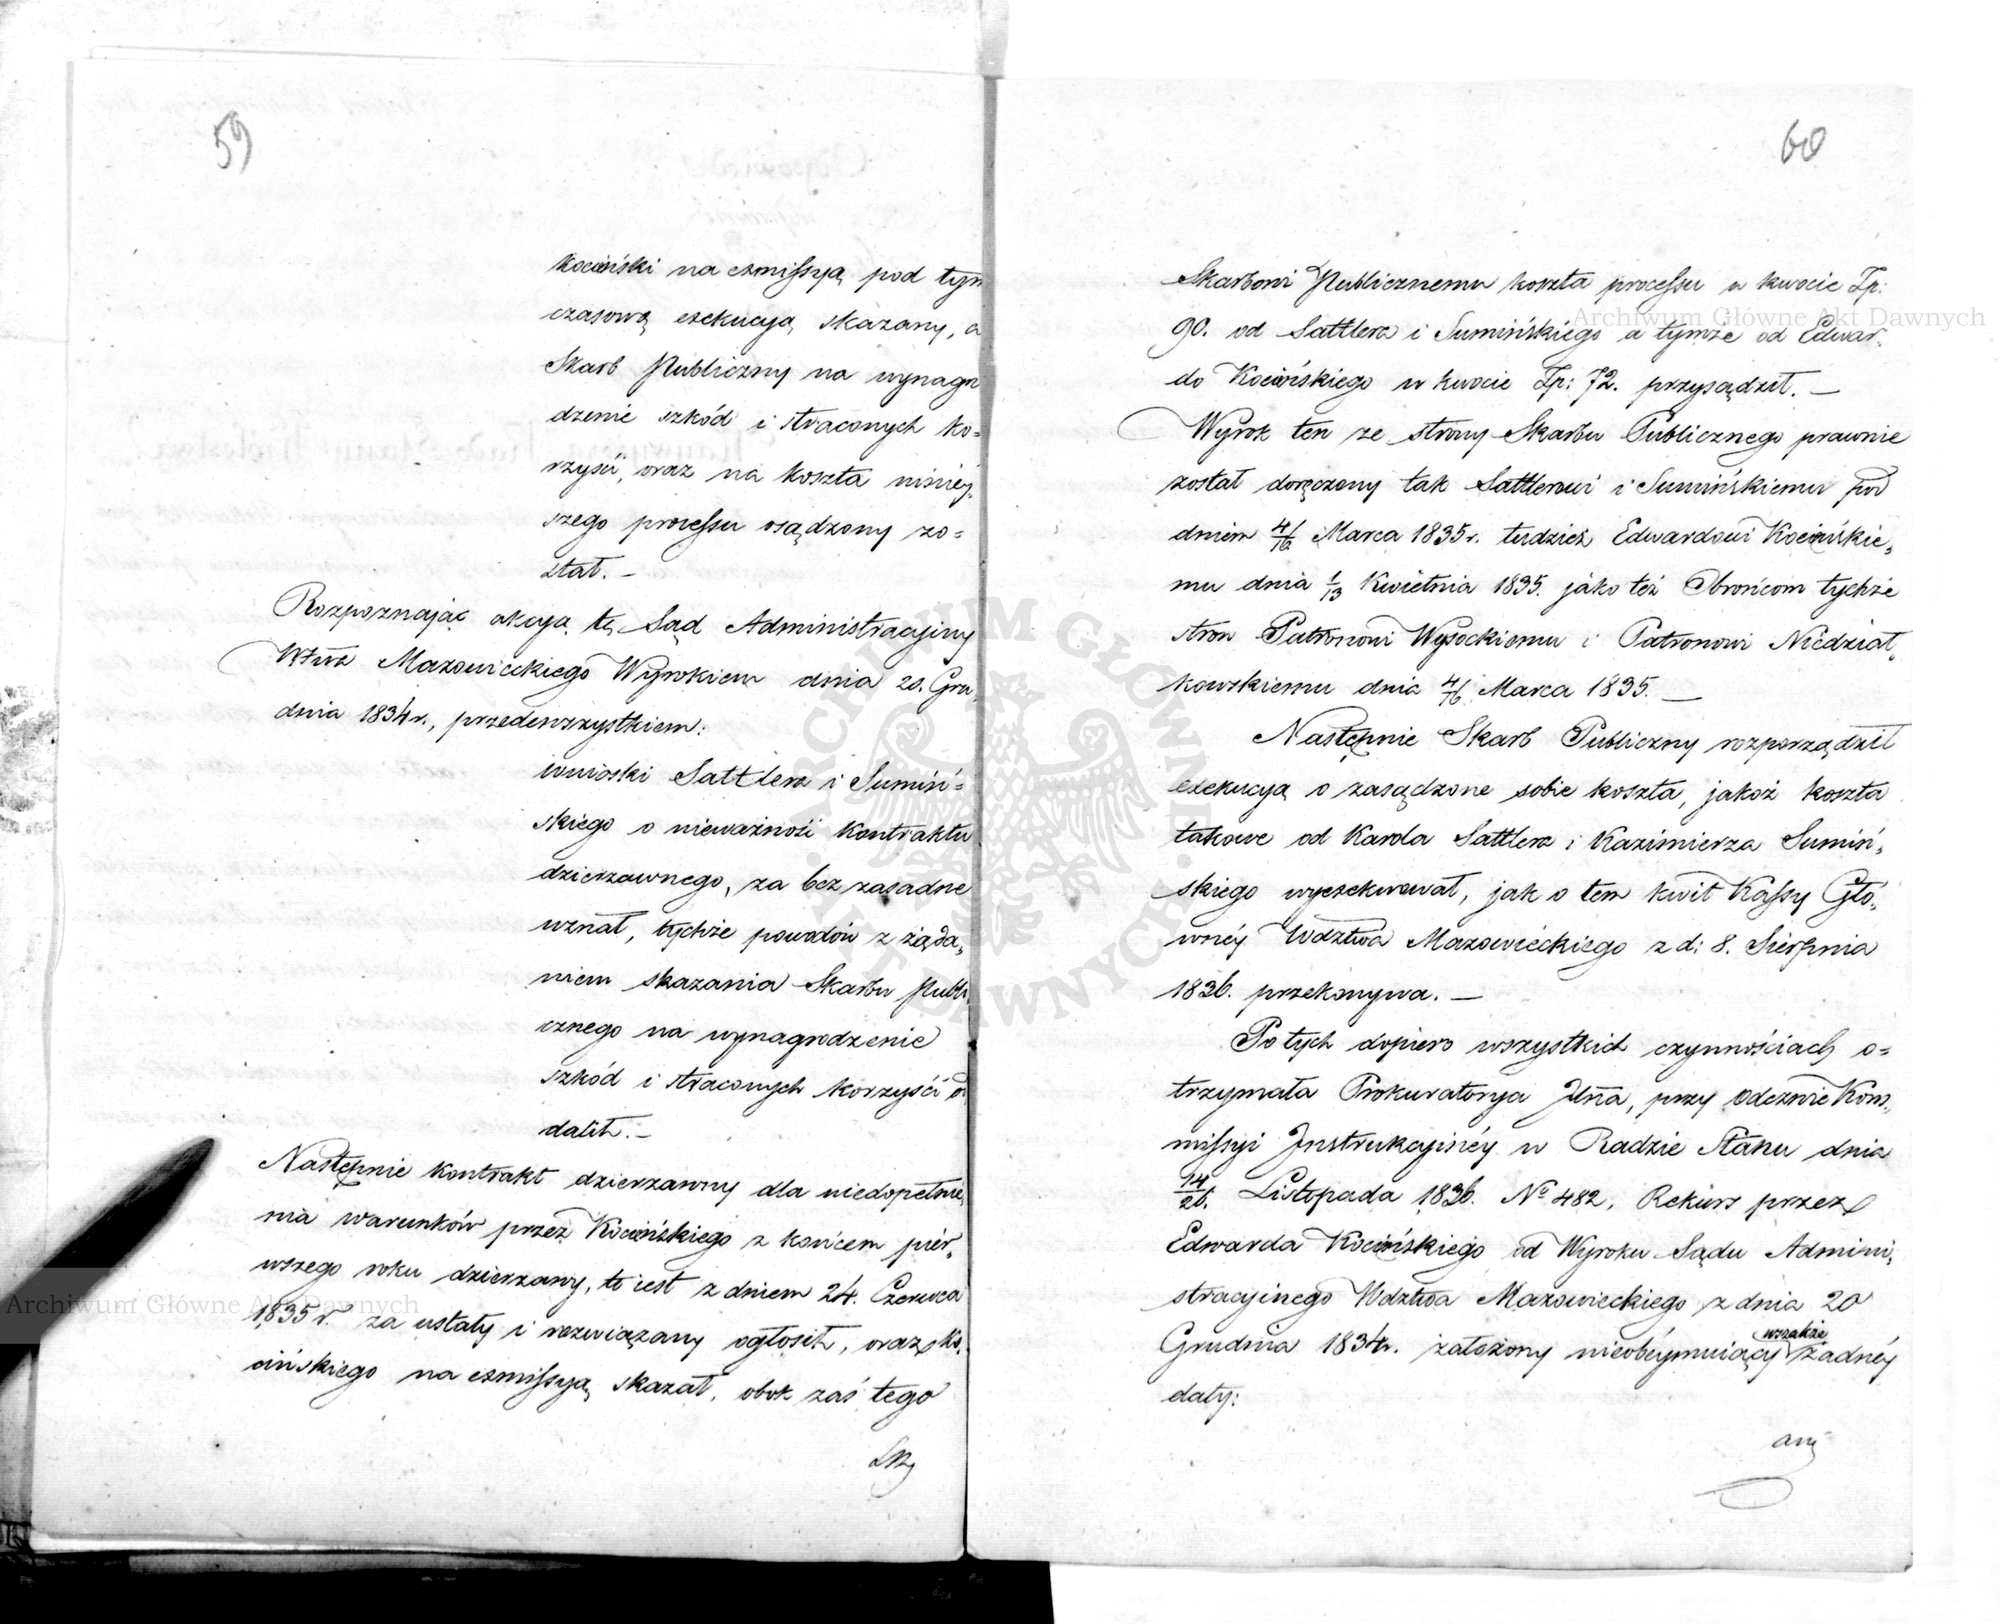 59
Kociński na exmissyą pod tym
czasową exekucyą skazany, a
Skarb Publiczny na wynagro
dzenie szkód i straconych ko=
rzyści, oraz na koszta niniéj,
szego processu osądzony zo=
stał. –
Rozpoznając akcyą tę Sąd Administracyiny
Wdztwa Mazowieckiego Wyrokiem dnia 20. Gru,
dnia 1834 r., przedewszystkiem:
wnioski Sattlera i Sumiń=
skiego o nieważność Kontraktu
dzierzawnego, za bez zasadne
uznał, tychże powodów z żąda,
niem skazania Skarbu Publi
cznego na wynagrodzenie
szkód i straconych korzyści od
dalił. –
Następnie Kontrakt dzierzawny dla niedopełnie,
nia warunków przez Kocińskiego z końcem pier,
wszego roku dzierzawy, to iest z dniem 24. Czerwca
1835 r. za ustały i rozwiązany ogłosił, oraz Ko,
cińskiego na exmissyą skazał, obok zaś tego
60
Skarbowi Publicznemu koszta processu w kwocie Zp:
90. od Sattlera i Sumińskiego a tymże od Edwar,
da Kocińskiego w kwocie Zp: 72. przysądził. –
Wyrok ten ze strony Skarbu Publicznego prawnie
został doręczony tak Sattlerowi i Sumińskiemu pod
dniem 4/16 Marca 1835 r. tudzież Edwardowi Kocińskie,
mu dnia 1/13 Kwietnia 1835. jáko też Obrońcom tychże
stron Patronowi Wysockiemu i Patronowi Niedział,
kowskiemu dnia 4/16 Marca 1835. –
Następnie Skarb Publiczny rozporządził
exekucyą o zasądzone sobie koszta, jakoż koszta
takowe od Karola Sattlera i Kazimierza Sumiń,
skiego wyexekwował, jak o tem kwit Kassy Głó,
wnéy Wdztwa Mazowieckiego z d: 8. Sierpnia
1836. przekonywa. –
Po tych dopiero wszystkich czynnościach o=
trzymała Prokuratorya Jlna, przy odezwie Kom,
missyi Jnstrukcyinéy w Radzie Stanu dnia
14/26. Listopada 1836. No 482, Rekurs przez
Edwarda Kocińskiego od Wyroku Sądu Admini,
stracyinego Wdztwa Mazowieckiego z dnia 20
Grudnia 1834 r. założony nieobéymuiący wszakże żadnéy
daty:
ani
Archiwum Główne Akt Dawnych
Archiwum Główne Akt Dawnych
ARCHIWUM GŁÓWNE AKT DAWNYCH